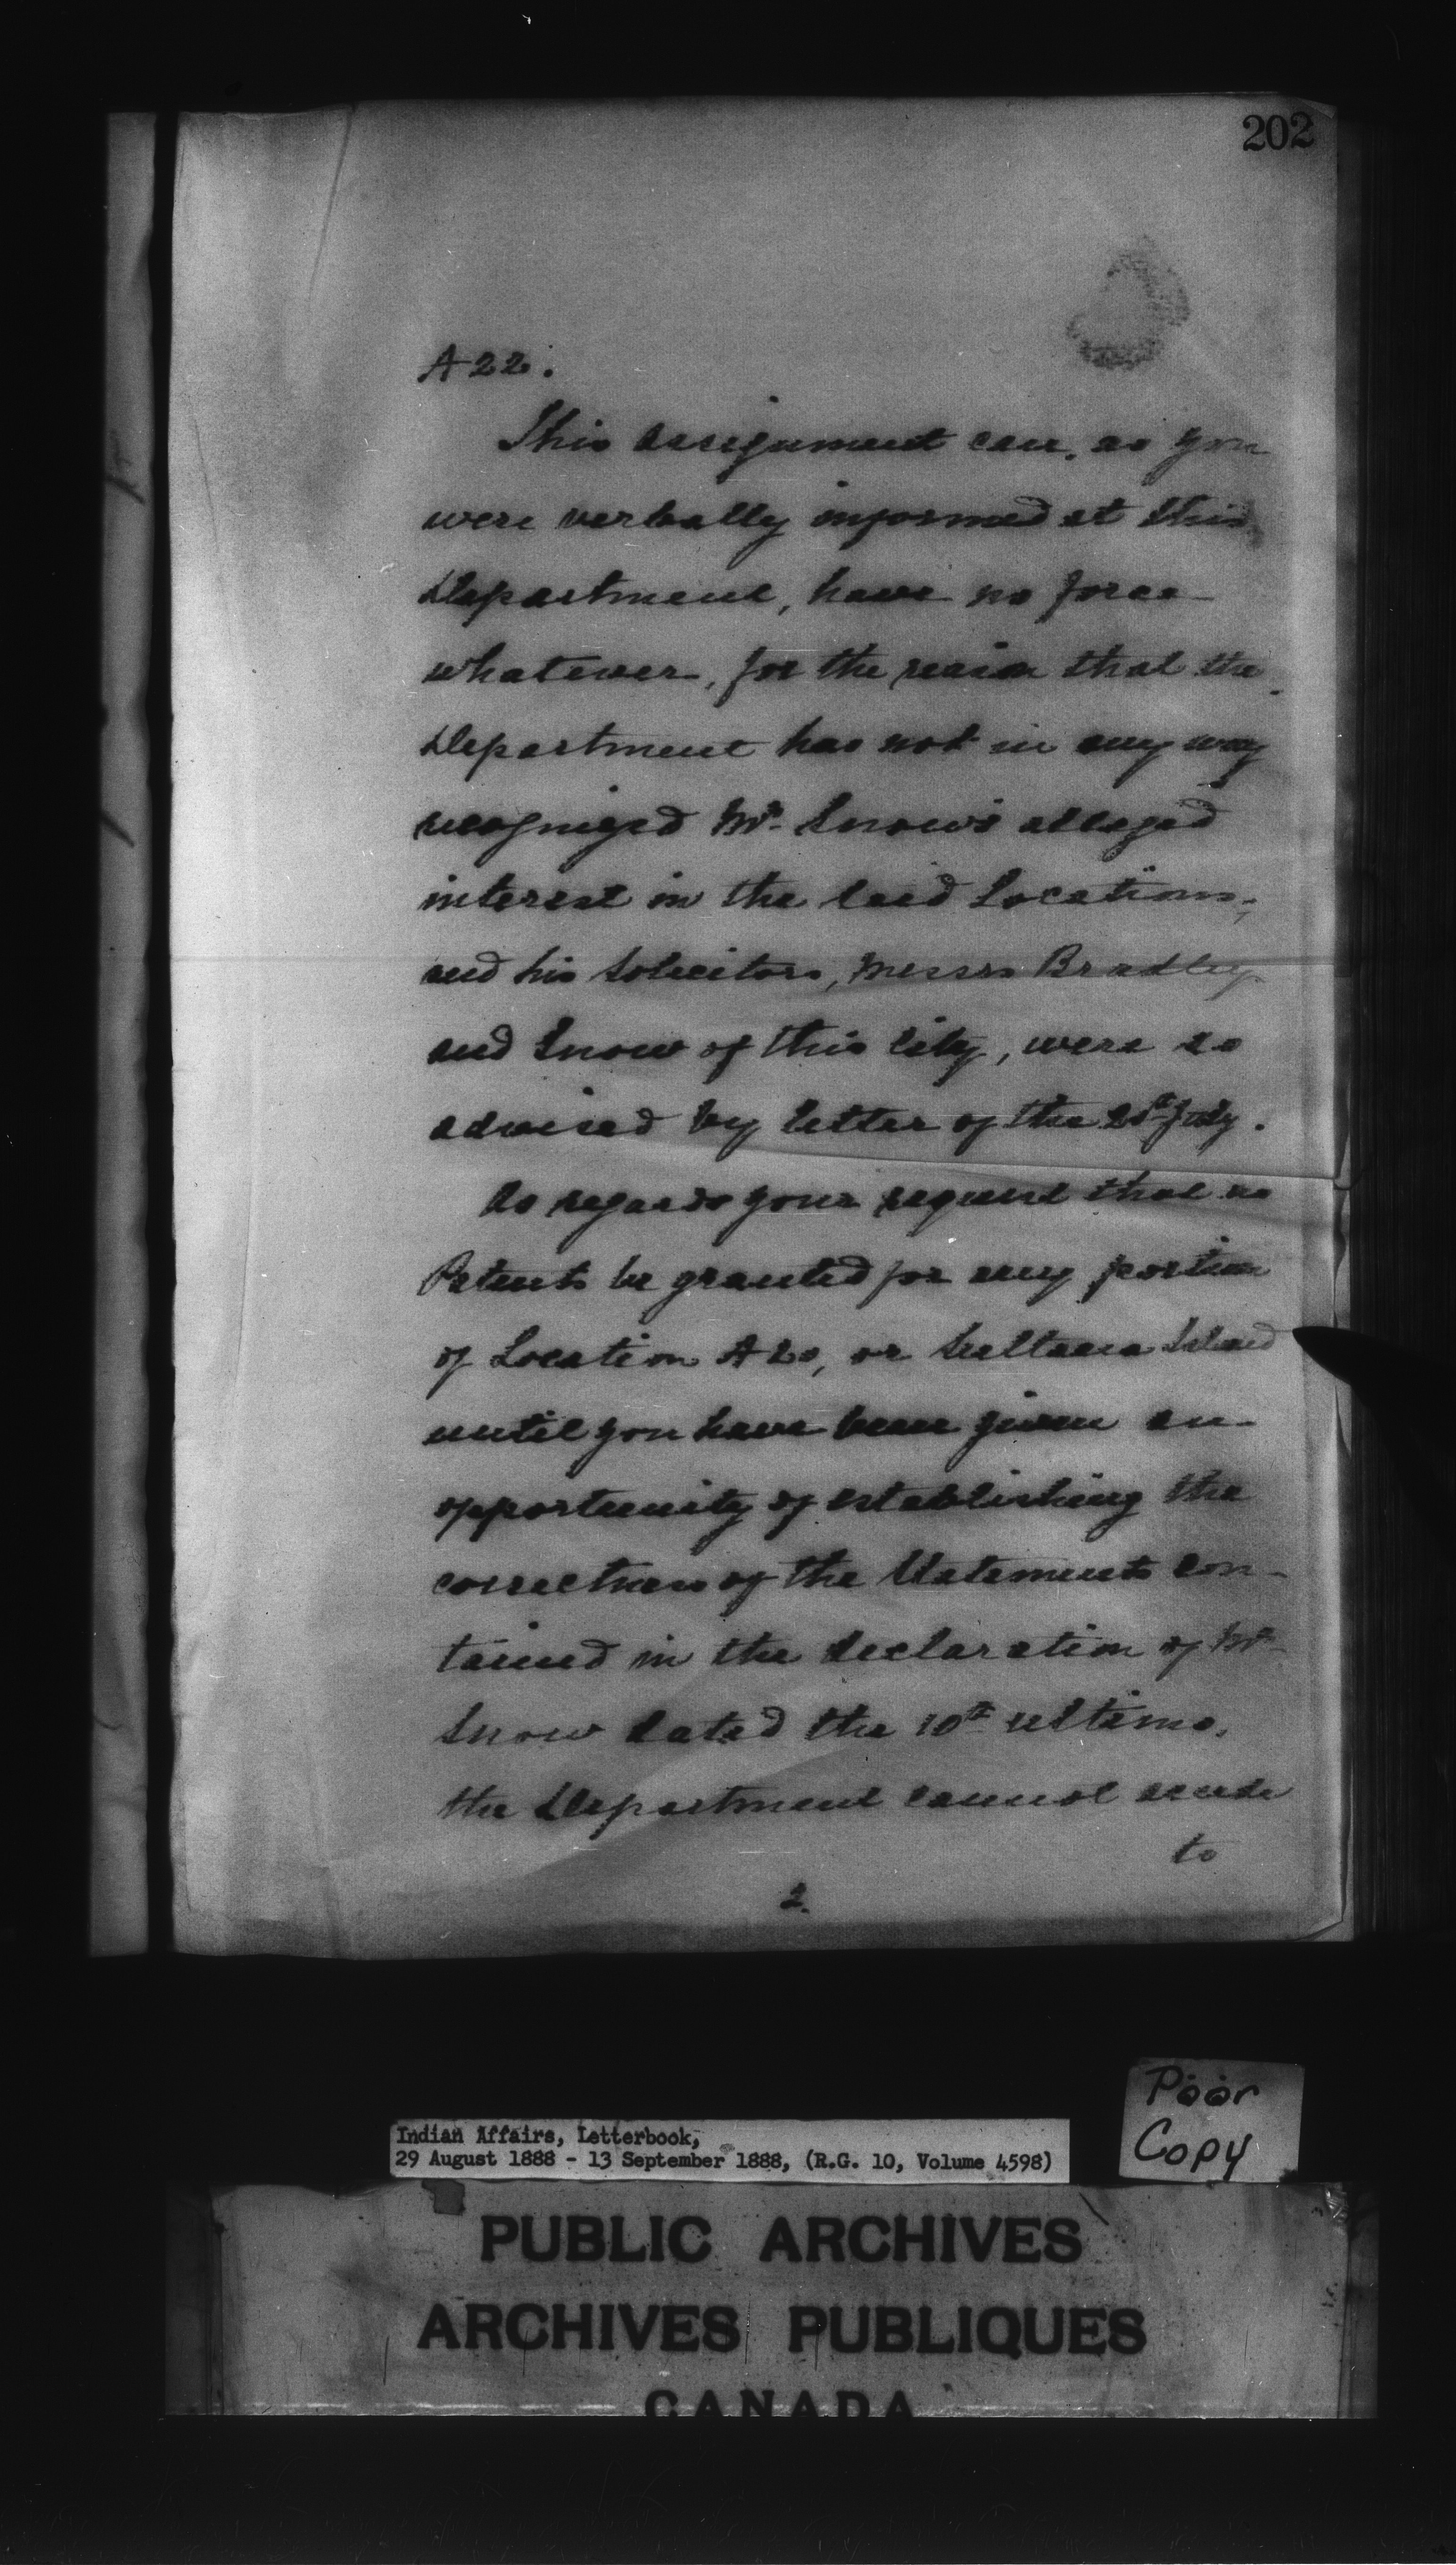 202
A 22.
This assignment can, as you
were verbally informed at this
Department, have no force
whatever, for the reason that the
Department has not in any way
recognized Mr. Snow's alleged
interest in the said Locations;
and his Solicitors, Messrs Bradley
and Snow of this City, were so
advised by letter of the July.
As regards your request that no
Patents be granted for any portion
of Location A 20, or Sultana Island
until you have been given an
opportunity of establishing the
correctness of the Statements con-
tained in the declaration of Mr
Snow dated the 10th ultimo,
the Department cannot accede
to
2.
Poor
Copy
Indian Affairs, Letterbook,
29 August 1888 - 13 September 1888, (R.G. 10, Volume 4598)
PUBLIC ARCHIVES
ARCHIVES PUBLIQUES
CANADA